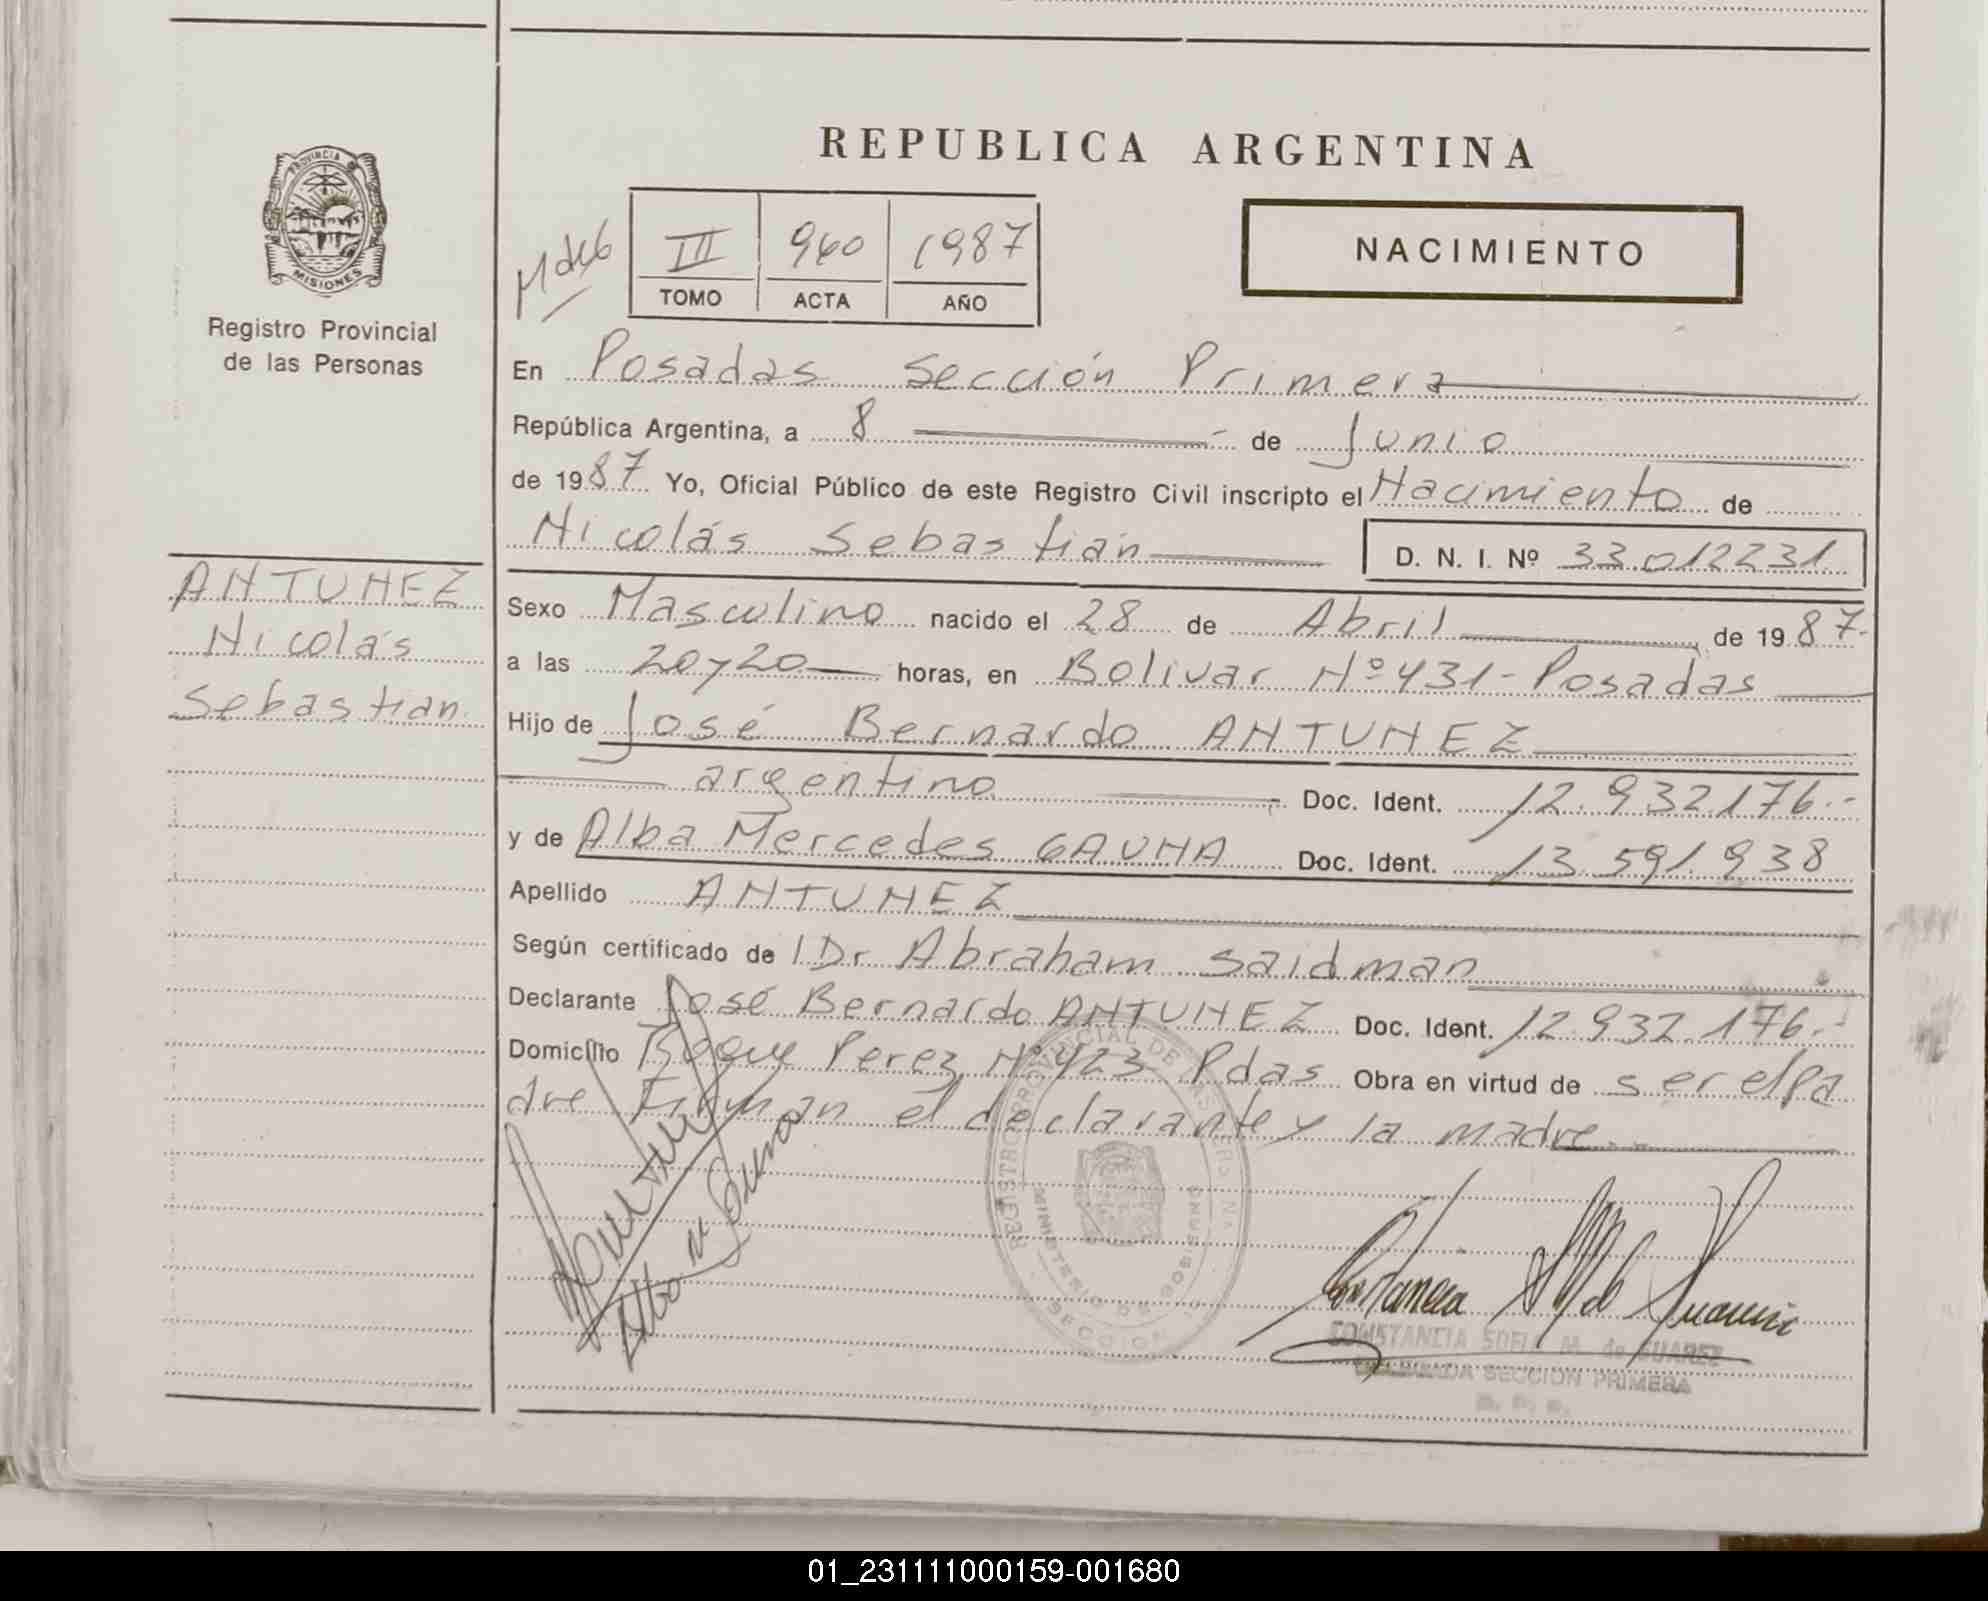 REPUBLICA ARGENTINA
PROVINCIA DE
MISIONES
Registro Provincial
de las Personas
III 960 1987
TOMO ACTA AÑO
NACIMIENTO
En Posadas Sección Primera
República Argentina, a 8 de Junio
de 1987 Yo, Oficial Público de este Registro Civil inscripto el Nacimiento de
Nicolás Sebastián D. N. I. Nº 33.012231
ANTUNEZ
Nicolás
Sebastian
Sexo Masculino nacido el 28 de Abril de 1987.
a las 20y20 horas, en Bolivar Nº 431-Posadas
Hijo de José Bernardo ANTUNEZ
argentino Doc. Ident. 12.932.176.-
y de Alba Mercedes GAUNA Doc. Ident. 13.591.938
Apellido ANTUNEZ
Según certificado de l Dr Abraham Saidman
Declarante José Bernardo ANTUNEZ Doc. Ident. 12.932.176.-
Domicilio Roque Perez Nº 423 Pdas Obra en virtud de ser el pa
dre Firman el declarante y la madre.-
REGISTRO PROVINCIAL DE LAS
MINISTERIO DE GOBIERNO
SECCION
Alba M Gauna
CONSTANCIA SOFIA M. de SUAREZ
SECCION PRIMERA
01_231111000159-001680